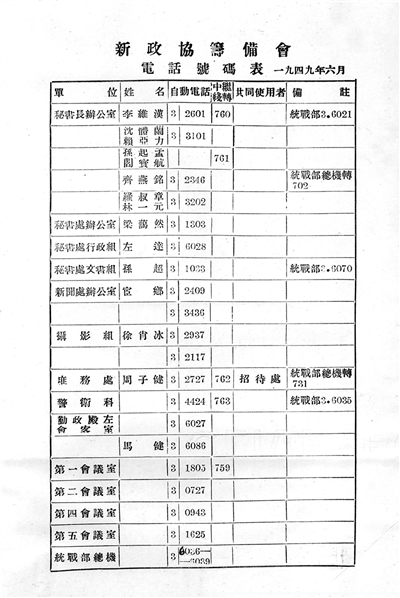 新政協籌備會
電話號碼表 一九四九年六月
單位 姓名 自動電話 中繼綫轉 共同使用者 備註
秘書長辦公室 李維漢 3 2601 760 統戰部3.6021
沈體蘭 賴亞力 3 3101
孫起孟 閻寶航 761
齊燕銘 3 2346 統戰部總機轉702
羅叔章 林一元 3 3202
秘書處辦公室 梁藹然 3 1303
秘書處行政組 左達 3 6028
秘書處文書組 孫超 3 1063 統戰部3.6070
新聞處辦公室 宦鄉 3 2409
3 3436
攝影組 徐肖冰 3 2937
3 2117
庶務處 周子健 3 2727 762 招待處 統戰部總機轉731
警衛科 3 4424 763 統戰部3.6035
勤政殿左會客室 3 6027
馬健 3 6086
第一會議室 3 1805 759
第二會議室 3 0727
第四會議室 3 0943
第五會議室 3 1625
統戰部總機 3 6036——6039